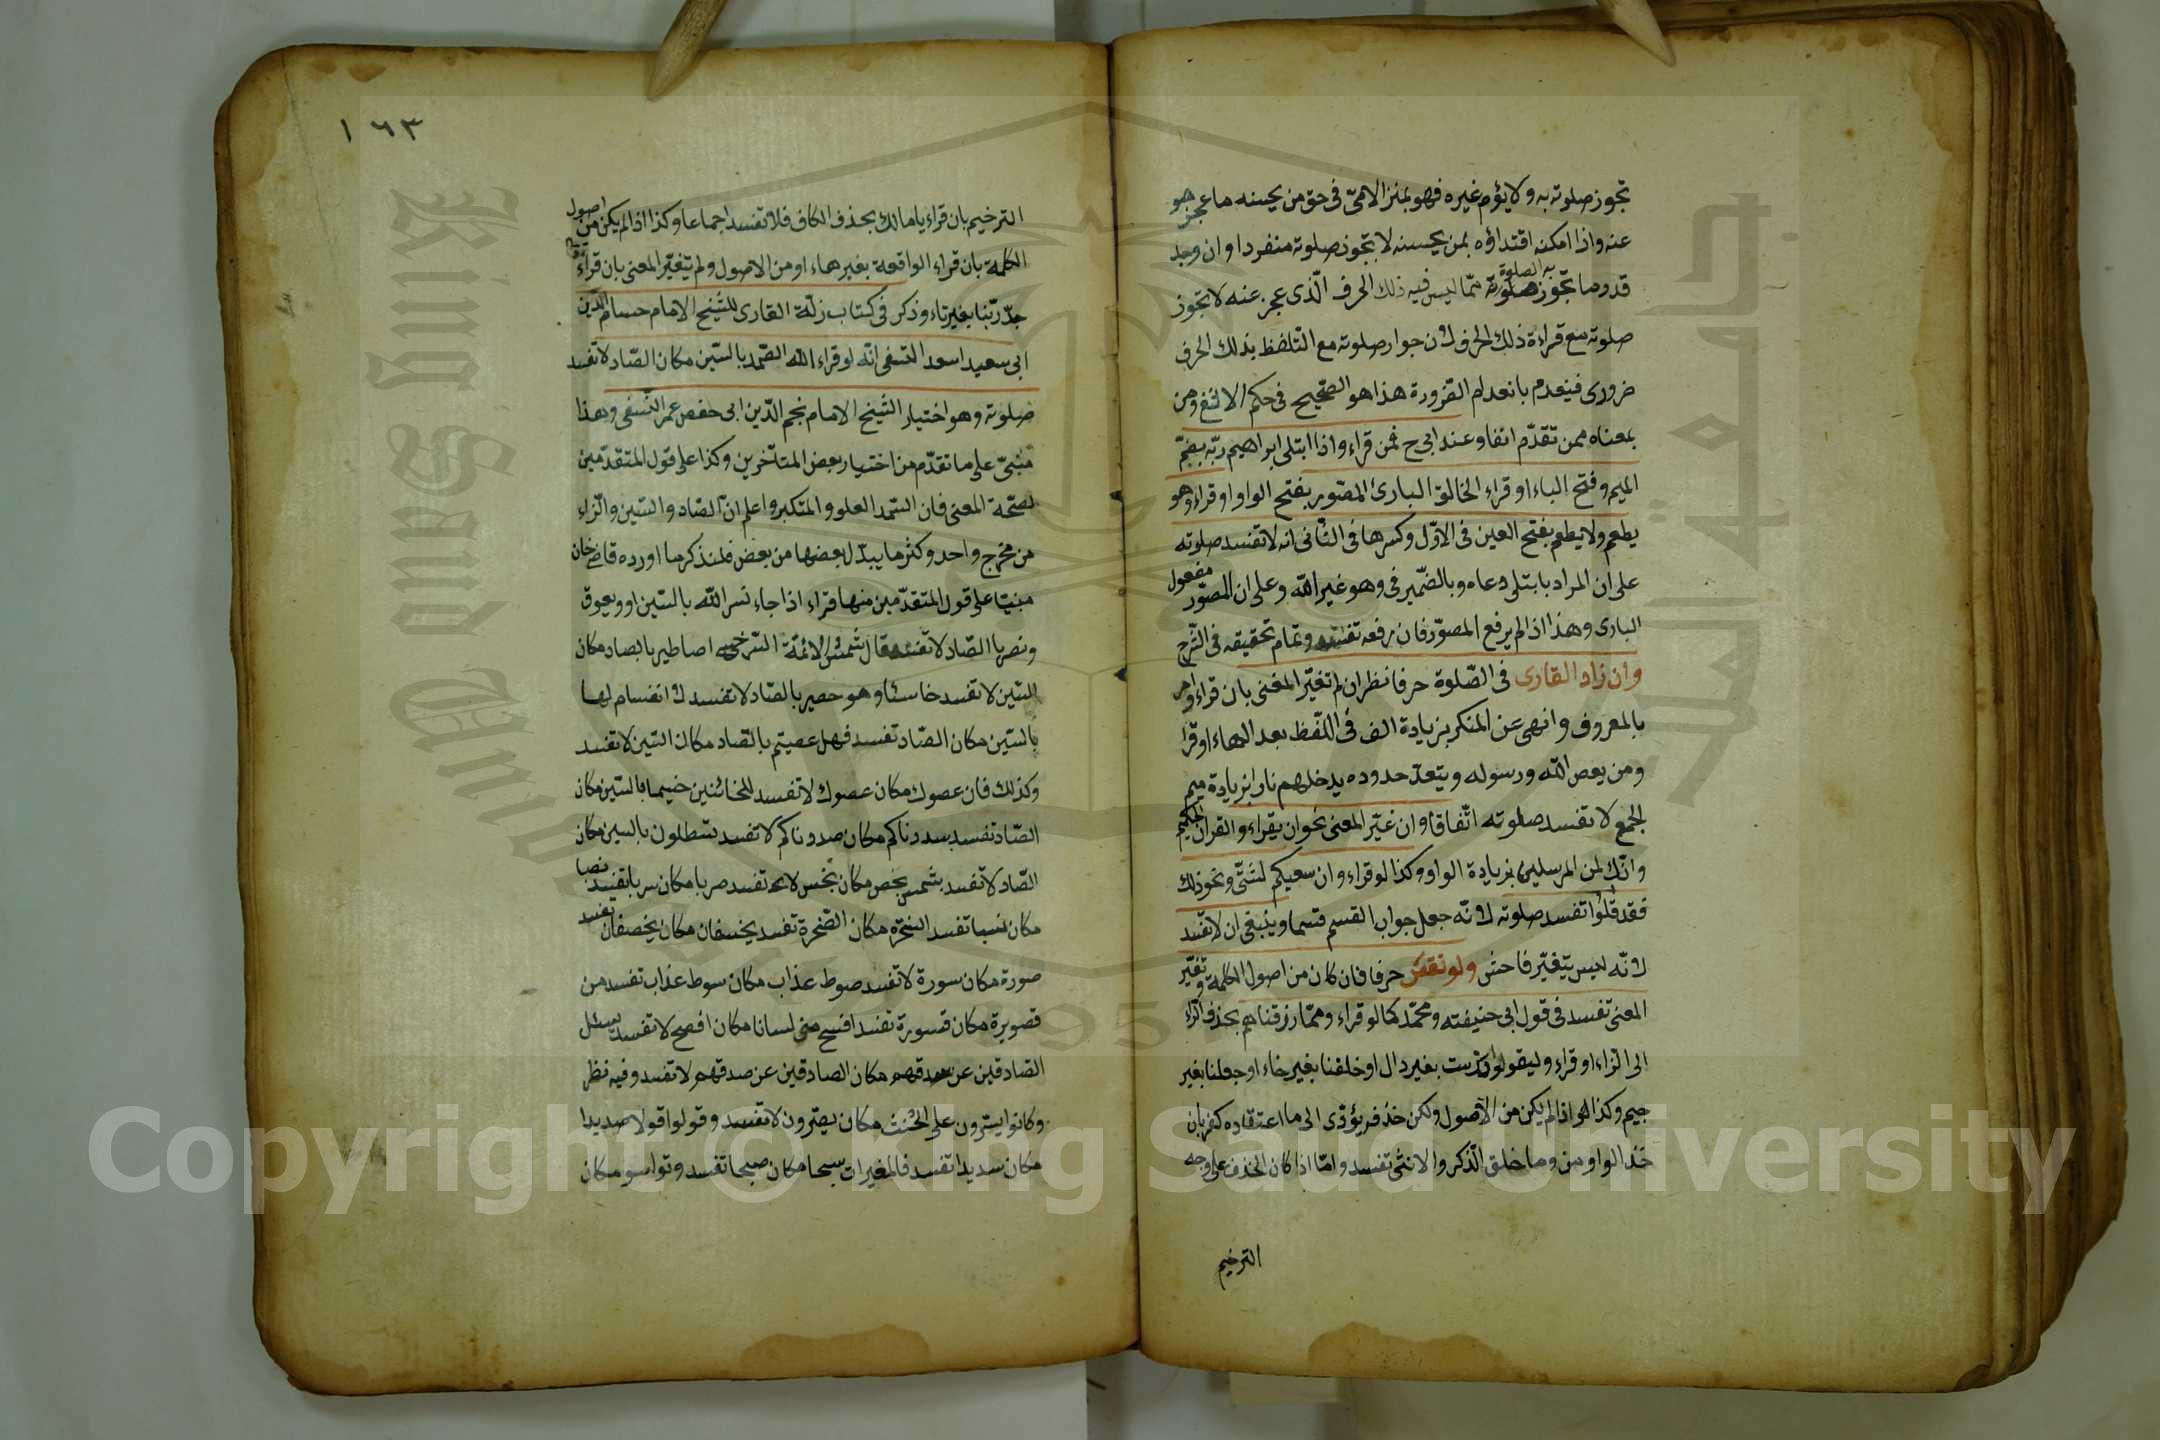 تجوز صلوته به ولا يؤم غيره فهو بمنزلة الامىّ فى حق من يحسنه ما عجز هو
عنه واذا امكنه اقتداؤه بمن يحسنه لا تجوز صلوته منفردا وان وجد
قدر ما تجوز به الصلوة ممّا ليس فيه ذلك الحرف الّذى عجز عنه لا تجوز
صلوته مع قراءة ذلك الحرف لان جواز صلوته مع التلفظ بذلك الحرف
ضرورى فينعدم بانعدام الضّرورة هذا هو الصّحيح فى حكم الالثغ ومن
بمعناه ممن تقدّم انفا وعند ابى ح فمن قراء واذا ابتلى ابراهيم ربّه بضمّ
الميم وفتح الباء او قراء الخالق البارئ المصّور بفتح الواو او قراء وهو
يطعم ولا يطعم بفتح العين فى الاوّل وكسرها فى الثّانى انه لا تفسد صلوته
على ان المراد بابتلى دعاه وبالضّمير فى وهو غير الله وعلى ان المصوّر مفعول
البارى وهذا اذا لم يرفع المصوّر فان رفعه تفسد وتمام تحقيقه فى الشّرح
وان زاد القارى فى الصّلوة حرفا نظر ان لم تغيّر المعنى بان قراء وامر
بالمعروف وانهى عن المنكر بزيادة الف فى اللّفظ بعد الهاء او قرا
ومن يعص الله ورسوله ويتعدّ حدوده يدخلهم نارا بزيادة ميم
الجمع لا تفسد صلوته اتّفاقا وان غيّر المعنى نحو ان يقراء والقران الحكيم
وانّك لمن المرسلين بزيادة الواو وكذا لو قراء وان سعيكم لشتّى ونحو ذلك
فقد قالوا تفسد صلوته لانّه جعل جواب القسم قسما وينبغى ان لا تفسد
لانّه ليس بتغيّر فاحش ولو نقص حرفا فان كان من اصول الكلمة وتغيّر
المعنى تفسد فى قول ابى حنيفته ومحمّد كما لو قراء وممّا رزقناهم بحذف الرّاء
الى الزّاء او قراء وليقولوا درست بغير دال او خلقنا بغير خاء او جعلنا بغير
جيم وكذا لو اذا لم يكن من الاصول ولكن حذفه يؤدّى الى ما اعتقاده كفر بان
حذ الواو من وما خلق الذّكر والانثى تفسد وامّا اذا كان الحذف على وجه
الترخيم
١٦٣
الترخيم بان قراء يا مالك بحذف الكاف فلا تفسد اجماعا وكذا اذا لم يكن من اصول
الكلمة بان قراء الواقعة بغير هاء او من الاصول ولم يتغيّر المعنى بان قراء
جدّ ربّنا بغير تاء وذكر فى كتاب زلّة القارى للشّيخ الامام حسام الدّين
ابى سعيد اسعد النسفى انّه لو قراء الله الصّمد بالسّين مكان الصّاد لا تفسد
صلوته وهو اختيار الشّيخ الامام نجم الدّين ابى حفص عمر النّسفى وهذا
مبنىّ على ما تقدّم من اختيار بعض المتأخّرين وكذا على قول المتقدّمين
لصّحة المعنى فان السّمد العلو والمتكبر واعلم انّ الصّاد والسّين والزّاء
من مخرج واحد وكثر ما يبدّل بعضها من بعض فلنذكر ما اورده قاضى خان
مبنيّا على قول المتقدّمين منها قراء اذا جاء نسر الله بالسّين او ويعوق
ونصرا بالصّاد لا تفسد وقال شّمس الائمّة السّرخسى اصاطير بالصاد مكان
السّين لا تفسد خاسئا وهو حصير بالصّاد لا تفسد لا انفسام لها
بالسّين مكان الصّاد تفسد فهل عصيتم بالصّاد مكان السّين لا تفسد
وكذلك فان عصوك مكان عصوك لا تفسد للخائنين خصيما بالسّين مكان
الصّاد تفسد سددناكم مكان صددناكم لا تفسد يسطلون بالسين مكان
الصّاد لا تفسد بثمن بخص مكان بخس لا تفسد صربا مكان سربا تفسد نصبا
مكان نسبا تفسد السّخرة مكان الصّخرة تفسد يخسفان مكان يخصفان تفسد
صورة مكان سورة لا تفسد صوط عذاب مكان سوط عذاب تفسد من
قصورة مكان قسورة تفسد افسح منى لسانا مكان افصح لا تفسد ليسئل
الصّادقين عن سدقهم مكان الصادقين عن صدقهم لا تفسد وفيه نظر
وكانوا يسترون على الحنث مكان يصّرون لا تفسد وقولوا قولا صديدا
مكان سديدا تفسد فالمغيرات سبحا مكان صبحا تفسد وتواسو مكان
Copyright © King Saud University
King Saud University